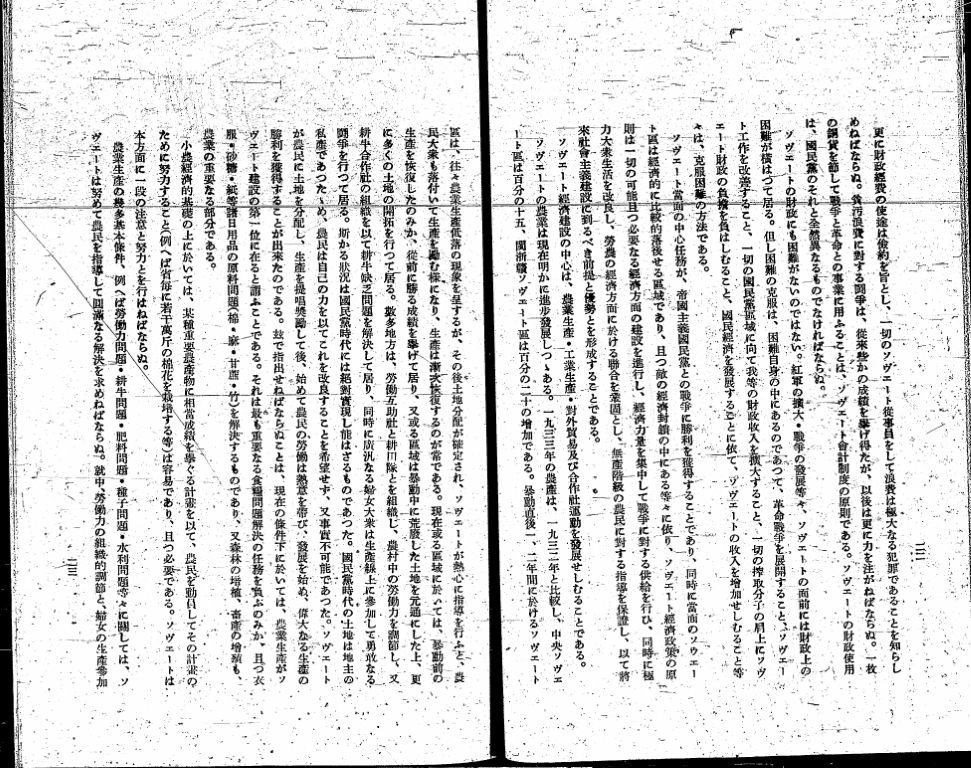 更に財政經費の使途は儉約を旨とし、一切のソヴェート從事員をして浪費は極大なる犯罪であることを知らし
めねばならぬ。貪汚浪費に對する鬪爭は、從來些かの成績を擧げ得たが、以後は更に力を注がねばならぬ。一枚
の銅貨を節して戰爭と革命との事業に用ふることは、ソヴェート會計制度の原則である。ソヴェートの財政使用
は、國民黨のそれと全然異なるものでなければならぬ。
ソヴェートの財政にも困難がないのではない。紅軍の擴大・戰爭の發展等々、ソヴェートの面前には財政上の
困難が橫はつて居る。但し困難の克服は、困難自身の中にあるのであつて、革命戰爭を展開すること、ソヴェー
ト工作を改善すること、一切の國民黨區域に向て我等の財政收入を擴大すること、一切の搾取分子の肩上にソヴ
ェート財政の負擔を負はしむること、國民經濟を發展することに依て、ソヴェートの收入を增加せしむること等
々は、克服困難の方法である。
ソヴェート當面の中心任務が、帝國主義國民黨との戰爭に勝利を獲得することであり、同時に當面のソヴェー
ト區は經濟的に比較的落後せる區域であり、且つ敵の經濟封鎖の中にある等々に依り、ソヴェート經濟政策の原
則は一切の可能且つ必要なる經濟方面の建設を進行し、經濟力量を集中して戰爭に對する供給を行ひ、同時に極
力大衆生活を改良し、勞農の經濟方面に於ける聯合を鞏固とし、無產階級の農民に對する指導を保證し、以て將
來社會主義建設に到るべき前提と優勢とを形成することである。
ソヴェート經濟建設の中心は、農業生產・工業生產・對外貿易及び合作社運動を發展せしむることである。
ソヴェートの農業は現在明かに進步發展しつゝある。一九三三年の農產は、一九三二年と比較し、中央ソヴェ
ート區は百分の十五、閩浙贛ソヴェート區は百分の二十の增加である。暴動直後一、二年間に於けるソヴェート
區は、往々農業生產低落の現象を呈するが、その後土地分配が確定され、ソヴェートが熱心に指導を行ふと、農
民大衆も落付いて生產を勵む樣になり、生產は漸次恢復するのが常である。現在或る區域に於いては、暴動前の
生產を恢復したのみか、從前に勝る成績を擧げて居り、又或る區域は暴動中に荒廢した土地を元通にした上、更
に多くの土地の開拓を行つて居る。數多地方は、勞働互助社と耕田隊とを組織し、農村中の勞働力を調節し、又
耕牛合作社の組織を以て耕牛缺乏問題を解決して居り、同時に廣汎なる婦女大衆は生產線上に參加して勇敢なる
鬪爭を行つて居る。斯かる狀況は國民黨時代には絕對實現し能はざるものであつた。國民黨時代の土地は地主の
私產であつたゝめ、農民は自己の力を以てこれを改良することを希望せず、又事實不可能であつた。ソヴェート
が農民に土地を分配し、生產を提唱奬勵して後、始めて農民の勞働は熱意を帶び、發展を始め、偉大なる生產の
勝利を獲得することが出來たのである。玆で指出せねばならぬことは、現在の條件下に於いては、農業生產がソ
ヴェート建設の第一位に在ると謂ふことである。それは最も重要なる食糧問題解決の任務を負ふのみか、且つ衣
服・砂糖・紙等諸日用品の原料問題(棉・麻・甘蔗・竹)を解決するものであり、又森林の培植、畜產の增殖も、
農業の重要なる部分である。
小農經濟的基礎の上に於いては、某種重要農產物に相當成績を擧ぐる計畫を以て、農民を動員してその計畫の
ために努力すること(例へば省每に若干萬斤の棉花を栽培する等)は容易であり、且つ必要である。ソヴェートは
本方面に一段の注意と努力とを行はねばならぬ。
農業生產の幾多基本條件、例へば勞働力問題・耕牛問題・肥料問題・種子問題・水利問題等々に關しては、ソ
ヴェートは努めて農民を指導して圓滿なる解決を求めねばならぬ。就中、勞働力の組織的調節と、婦女の生產參加